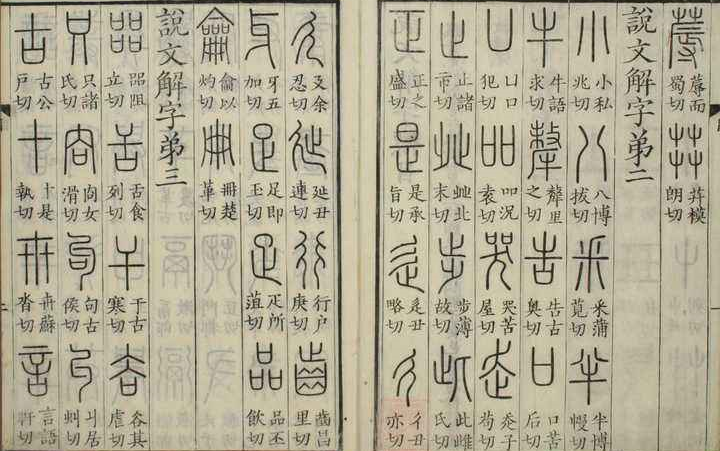 蓐 蓐而蜀切 茻 茻模朗切
說文解字弟二
小 小私兆切 八 八博拔切 釆 釆蒲莧切 半 半博幔切
牛 牛語求切 犛 犛里之切 告 告古奧切 口 口苦后切
凵 凵口犯切 吅 吅況袁切 哭 哭苦屋切 走 走子苟切
止 止諸市切 癶 癶北末切 步 步薄故切 此 此雌氏切
正 正之盛切 是 是承旨切 辵 辵丑略切 彳 彳丑亦切
廴 廴余忍切 㢟 延丑連切 行 行户庚切 齒 齒昌里切
牙 牙五加切 足 足即玉切 疋 疋所菹切 品 品丕飲切
龠 龠以灼切 冊 冊楚革切
說文解字弟三
㗊 㗊阻立切 舌 舌食列切 干 干古寒切 谷 谷其虐切
只 只諸氏切 㕯 㕯女滑切 句 句古侯切 丩 丩居虯切
古 古公戶切 十 十是執切 卅 卅蘇沓切 言 言語軒切